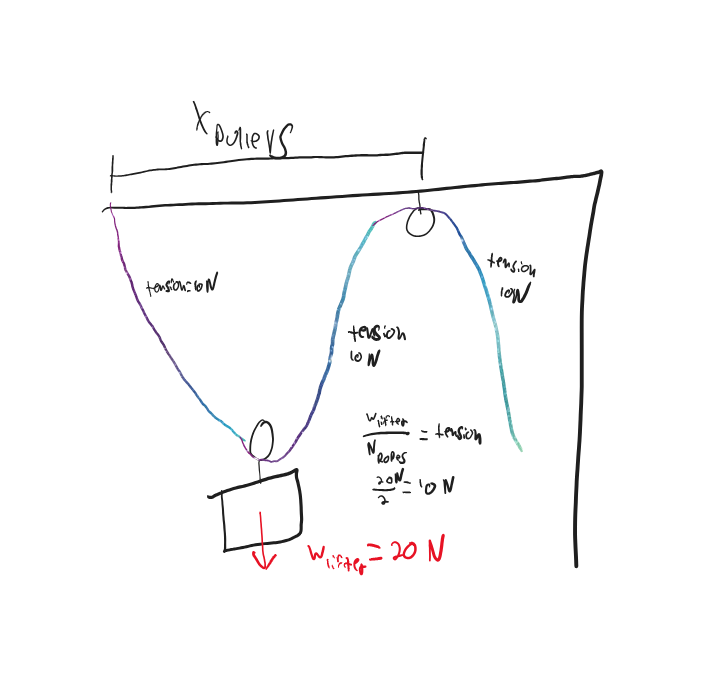 X pulleys
tension=10N
tension
10N
tension
10 N
W lifter / N Ropes = tension
20N / 2 = 10 N
W lifter = 20 N